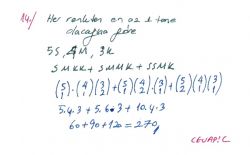 14./ Her renkten en az 1 tane
olacağına göre
5S, 4M, 3K
SMKK + SMMK + SSMK
(5 1)·(4 1)(3 2)+(5 1)(4 2)·(3 1)+(5 2)(4 1)(3 1)
5.4.3 + 5.6.3 + 10.4.3
60+90+120 = 270
CEVAP: C